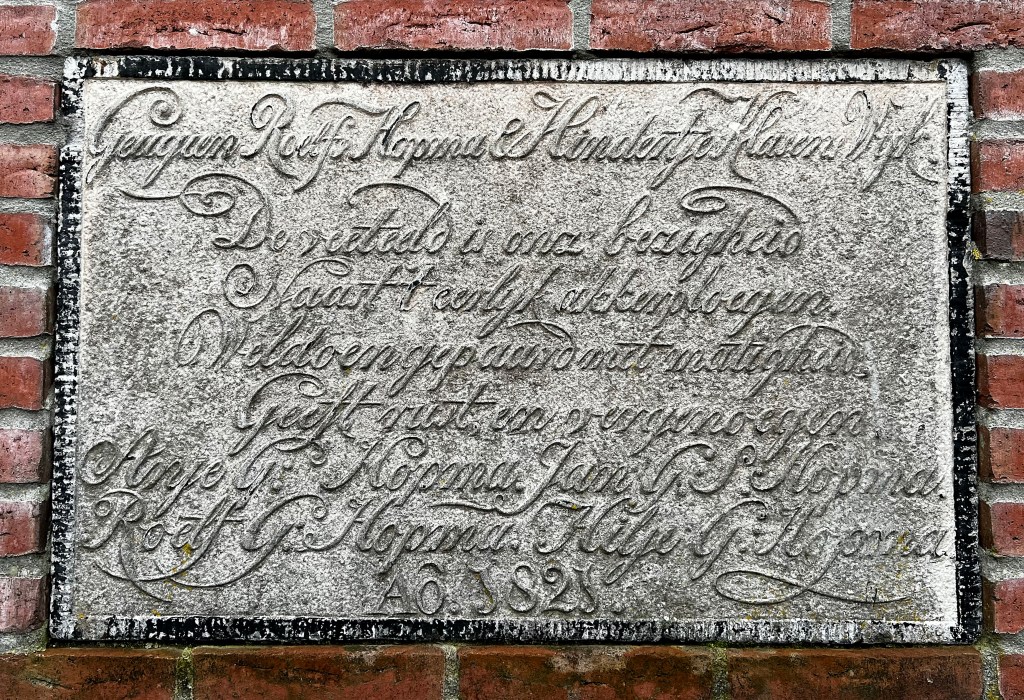 Geugien Roelfs Hopma & Hinderktje Klasens Wijk.
De veeteeld is onze bezigheid
Naast 't eerlijk akkerploegen.
Weldoen gepaard met matigheid.
Geeft rust, en vergenoegen.
Anje G: Hopma. Jan G. S. Hopma.
Roelf G: Hopma. Hilje G: Hopma.
A͟o͟. 1821.